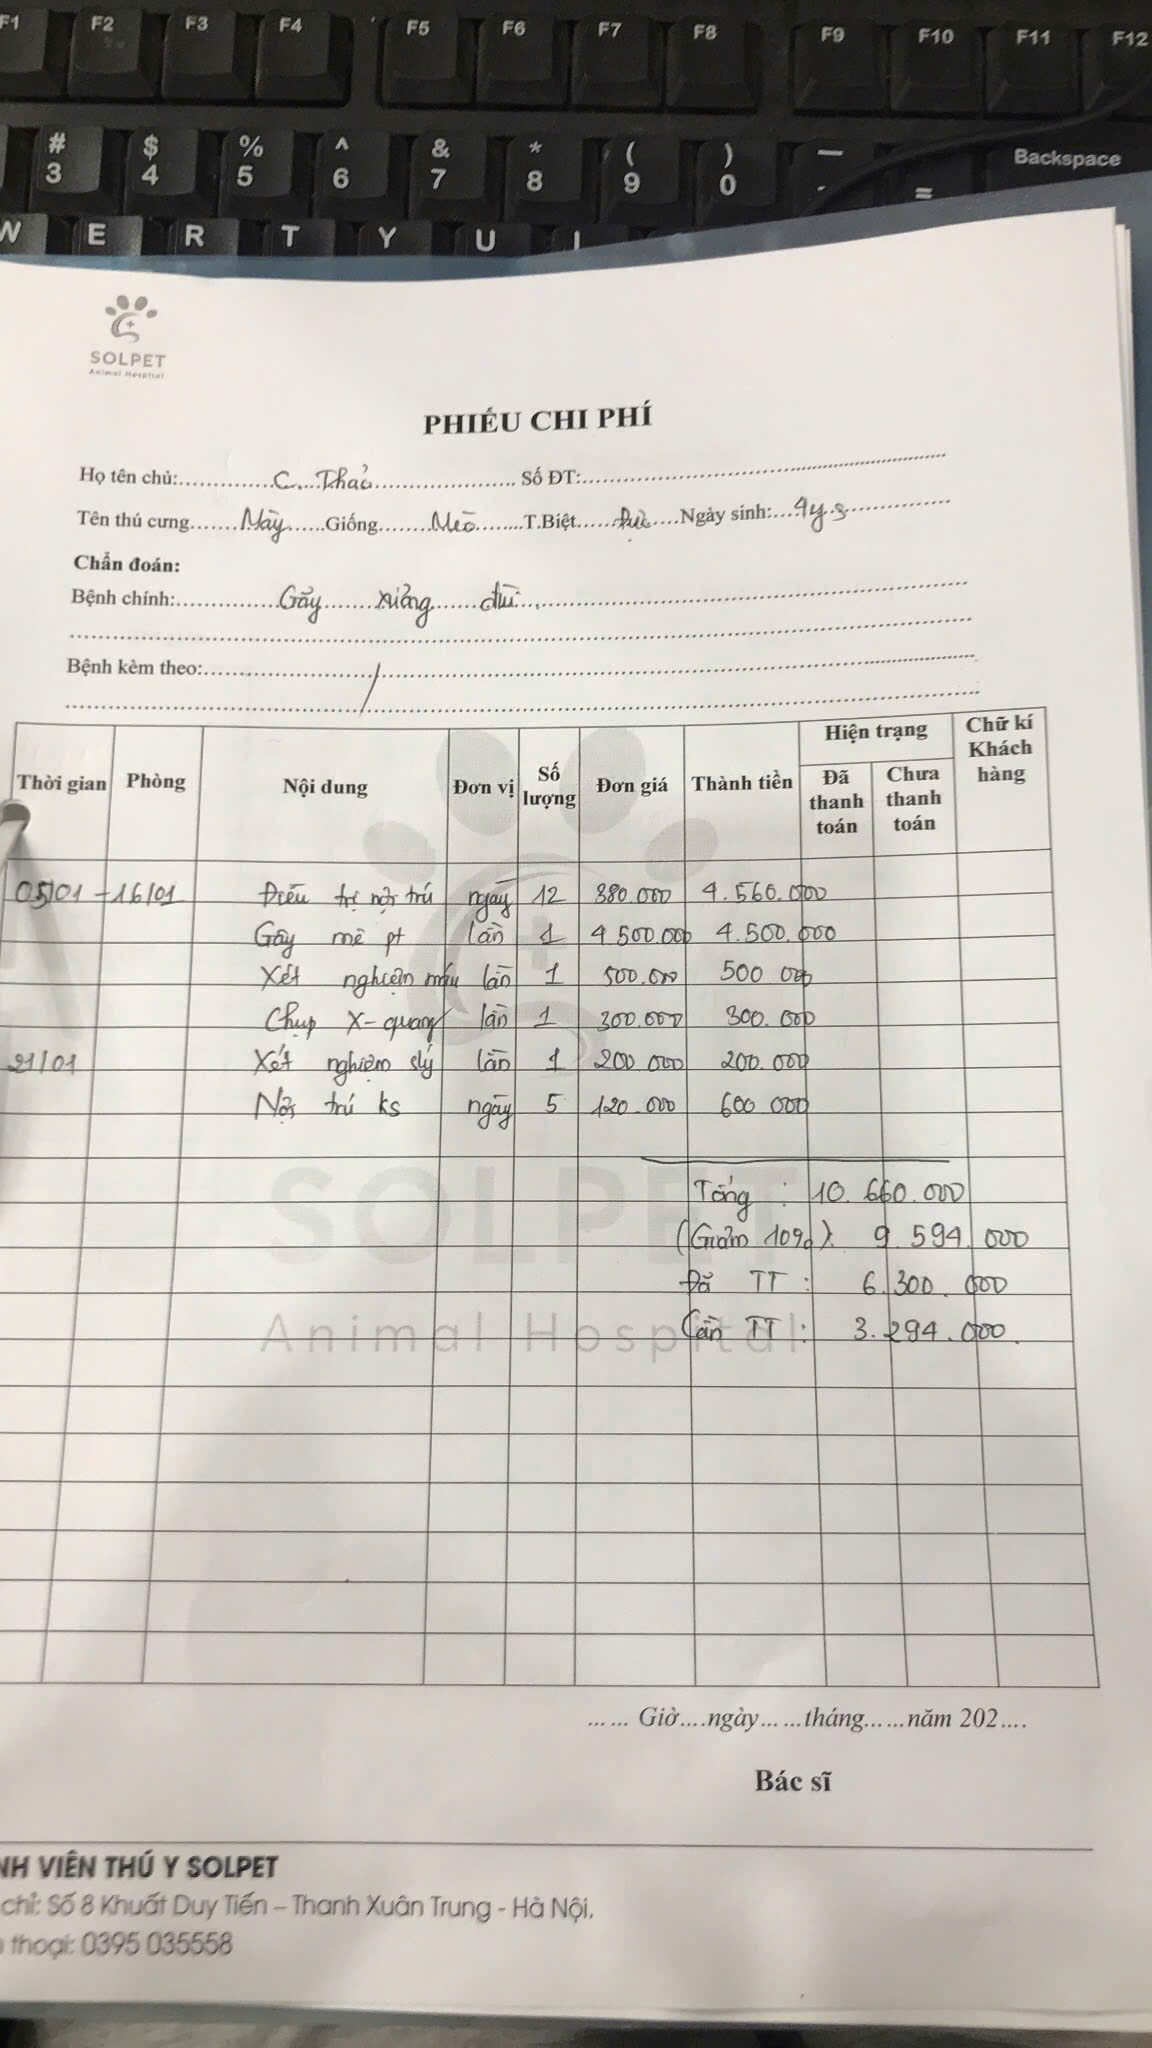 F1 F2 F3 F4 F5 F6 F7 F8 F9 F10 F11 F12
# $ % ^ & * ( ) — Backspace
3 4 5 6 7 8 9 0 - =
W E R T Y U I
SOLPET
Animal Hospital
PHIẾU CHI PHÍ
Họ tên chủ: C. Thảo Số ĐT:
Tên thú cưng Mày Giống Mèo T.Biệt Đực Ngày sinh: 4y s
Chẩn đoán:
Bệnh chính: Gãy xương đùi
Bệnh kèm theo: /
Thời gian Phòng Nội dung Đơn vị Số lượng Đơn giá Thành tiền Hiện trạng Chữ kí Khách hàng
Đã thanh toán Chưa thanh toán
05/01 - 16/01 Điều trị nội trú ngày 12 380.000 4.560.000
Gây mê pt lần 1 4 500.000 4.500.000
Xét nghiệm máu lần 1 500.000 500 000
Chụp X-quang lần 1 300.000 300.000
21/01 Xét nghiệm slý lần 1 200 000 200.000
Nội trú ks ngày 5 120.000 600 000
Tổng : 10.660.000
(Giảm 10%): 9 594.000
Đã TT : 6.300.000
Cần TT : 3.294.000.
SOLPET
Animal Hospital
...... Giờ....ngày......tháng......năm 202....
Bác sĩ
NH VIÊN THÚ Y SOLPET
chỉ: Số 8 Khuất Duy Tiến – Thanh Xuân Trung - Hà Nội.
thoại: 0395 035558